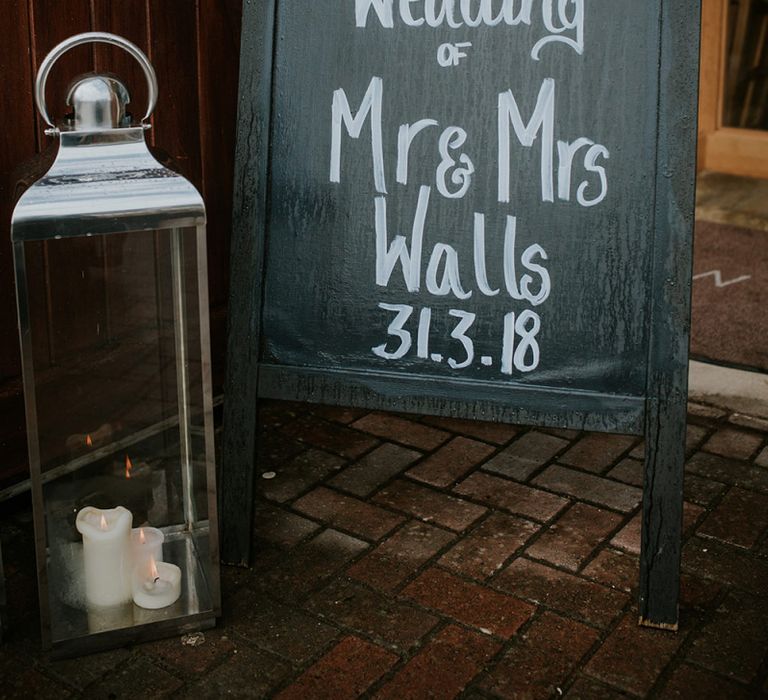 Wedding
OF
Mr & Mrs
Walls
31.3.18